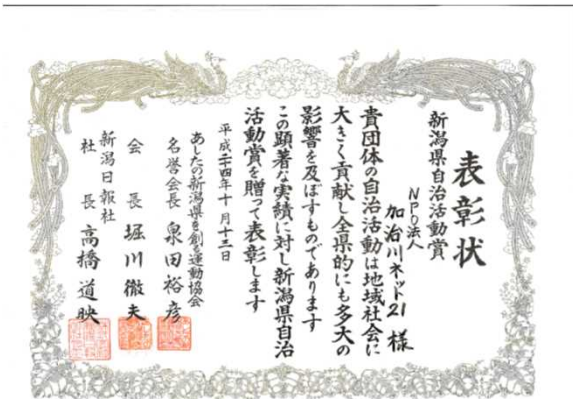 表彰状
新潟県自治活動賞
NPO法人
加治川ネット21 様
貴団体の自治活動は地域社会に
大きく貢献し全県的にも多大の
影響を及ぼすものであります
この顕著な実績に対し新潟県自治
活動賞を贈って表彰します
平成二十四年十月十三日
あしたの新潟県を創る運動協会
名誉会長 泉田裕彦
会長 堀川徹夫
新潟日報社
社長 高橋道映